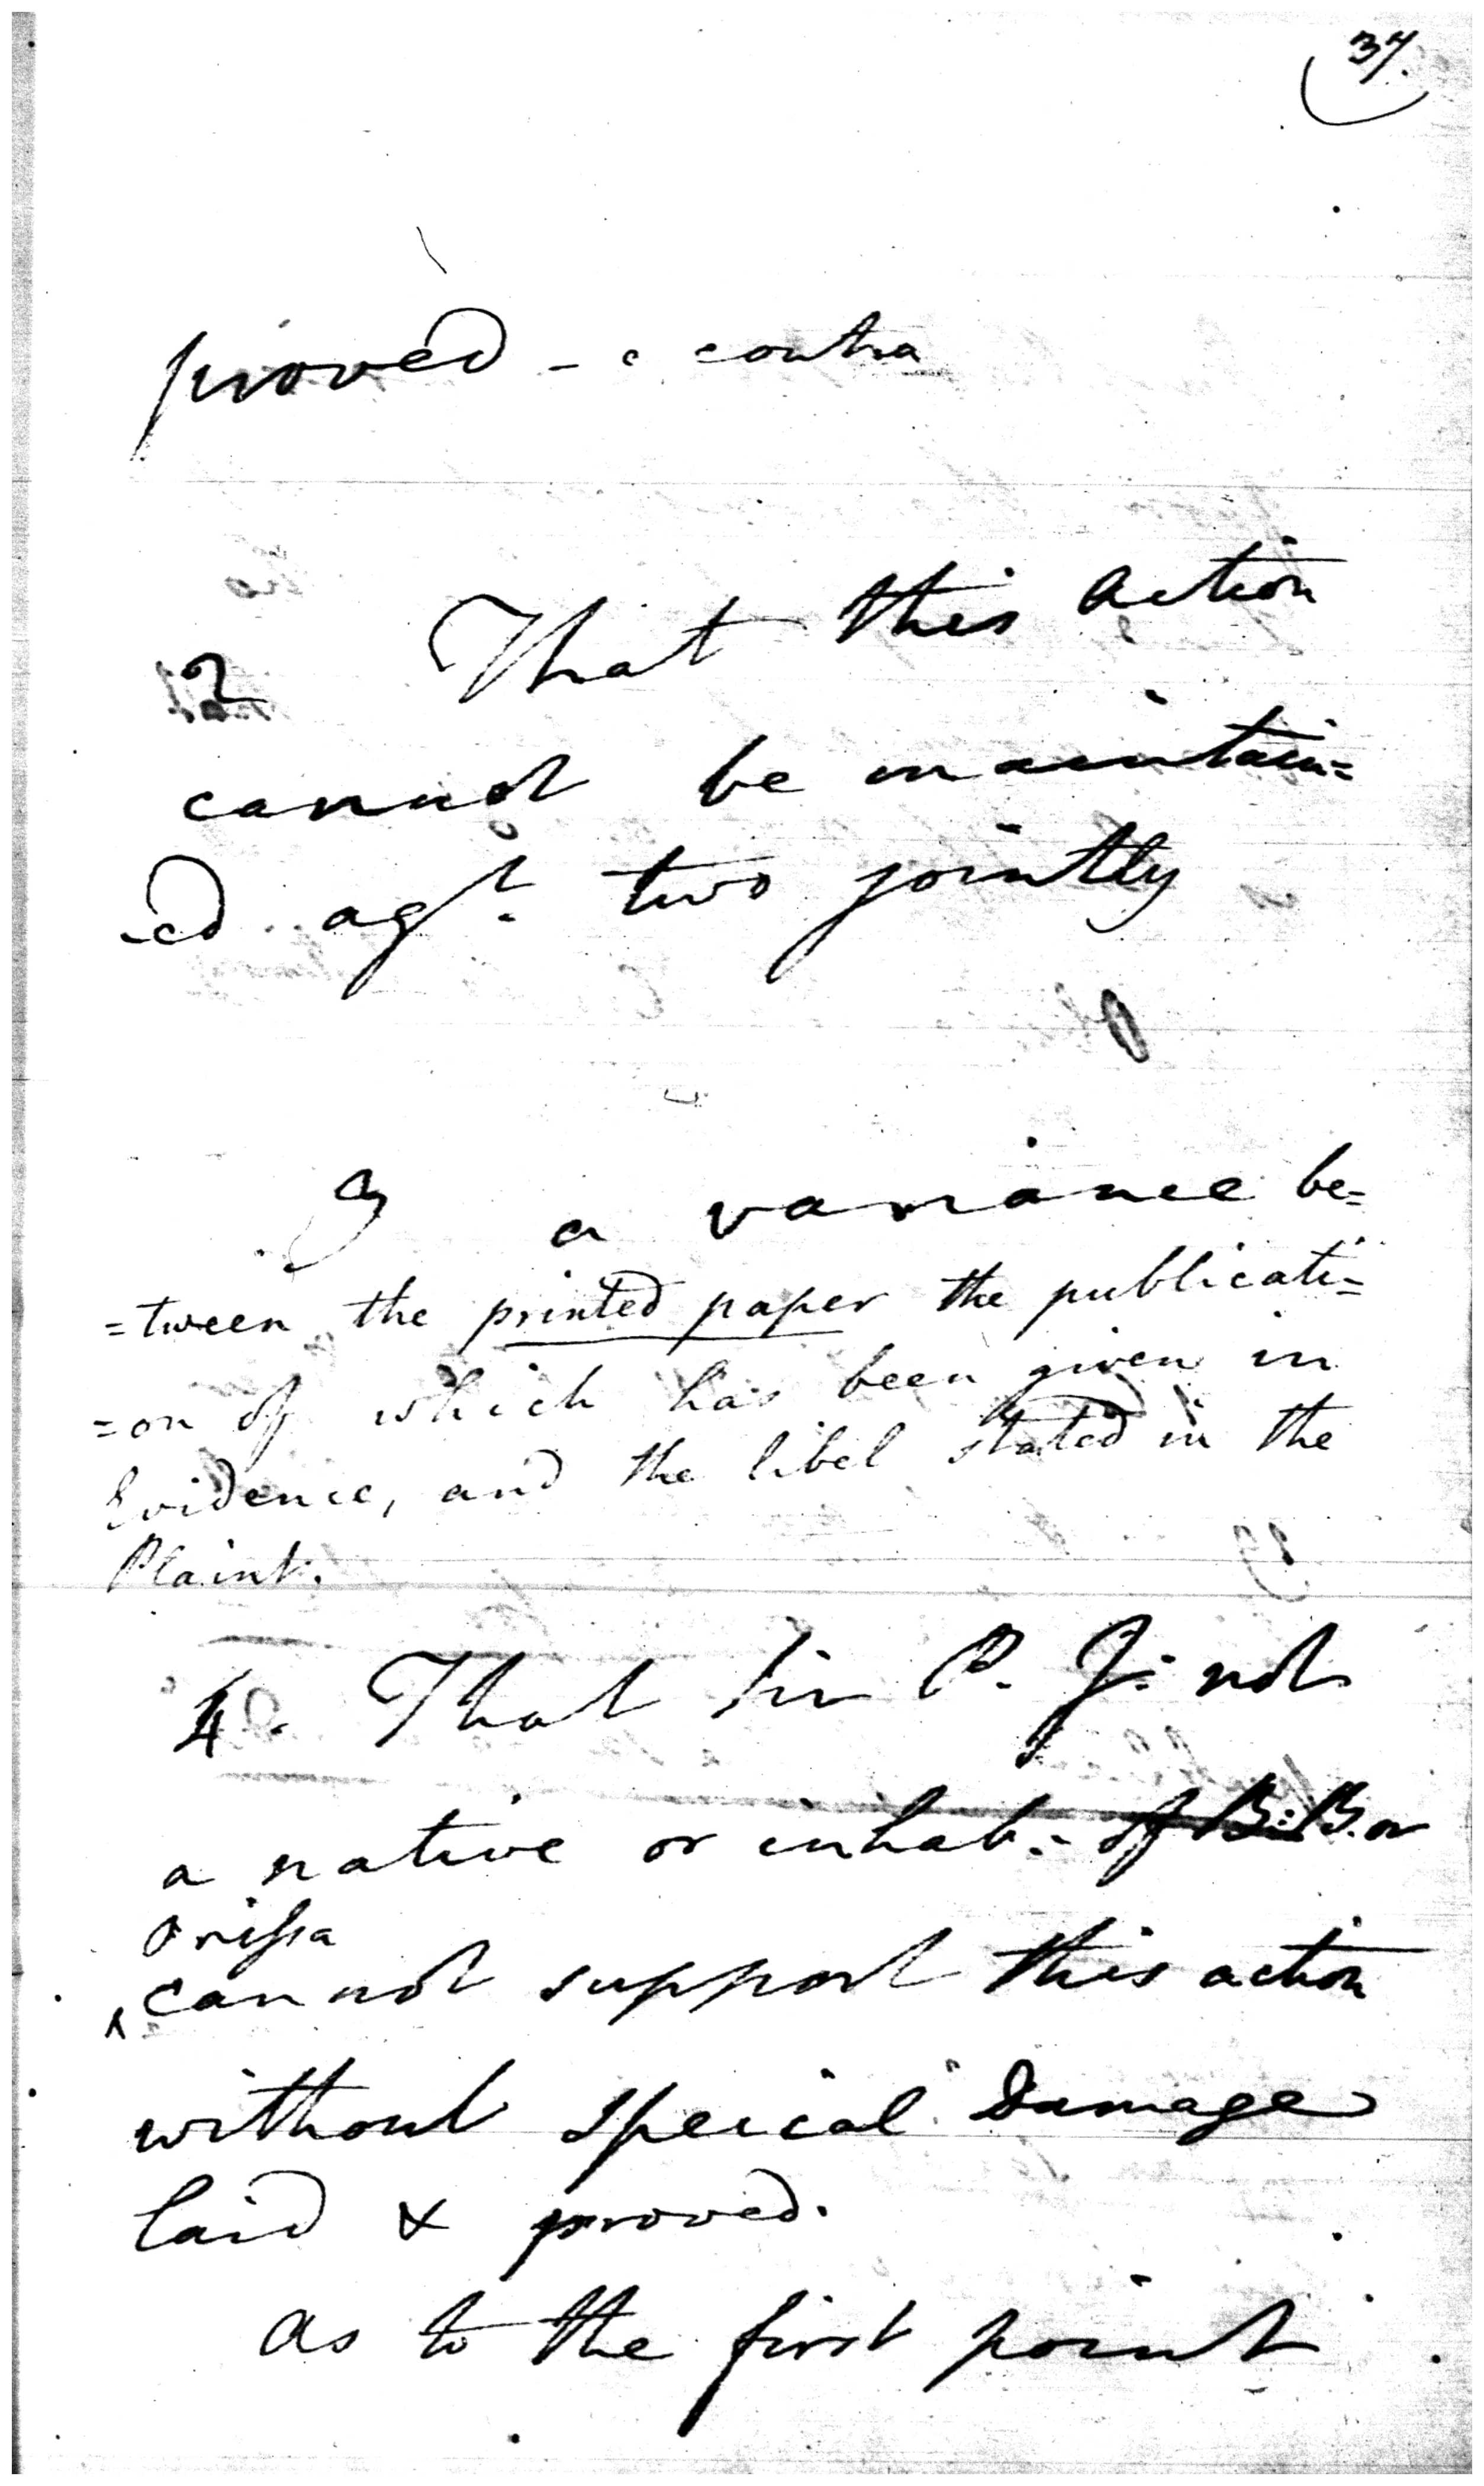 37.
proved - e contra
2 That this action
cannot be maintain=
-ed agt. two jointly
3 a variance be=
=tween the printed paper the publicati=
=on of which has been given in
Evidence, and the libel stated in the
Plaint.
4. That Sir P. J: not
a native or inhab:- of B: B. or
Orissa
cannot support this action
without speical Damage
laid & proved.
as to the first point